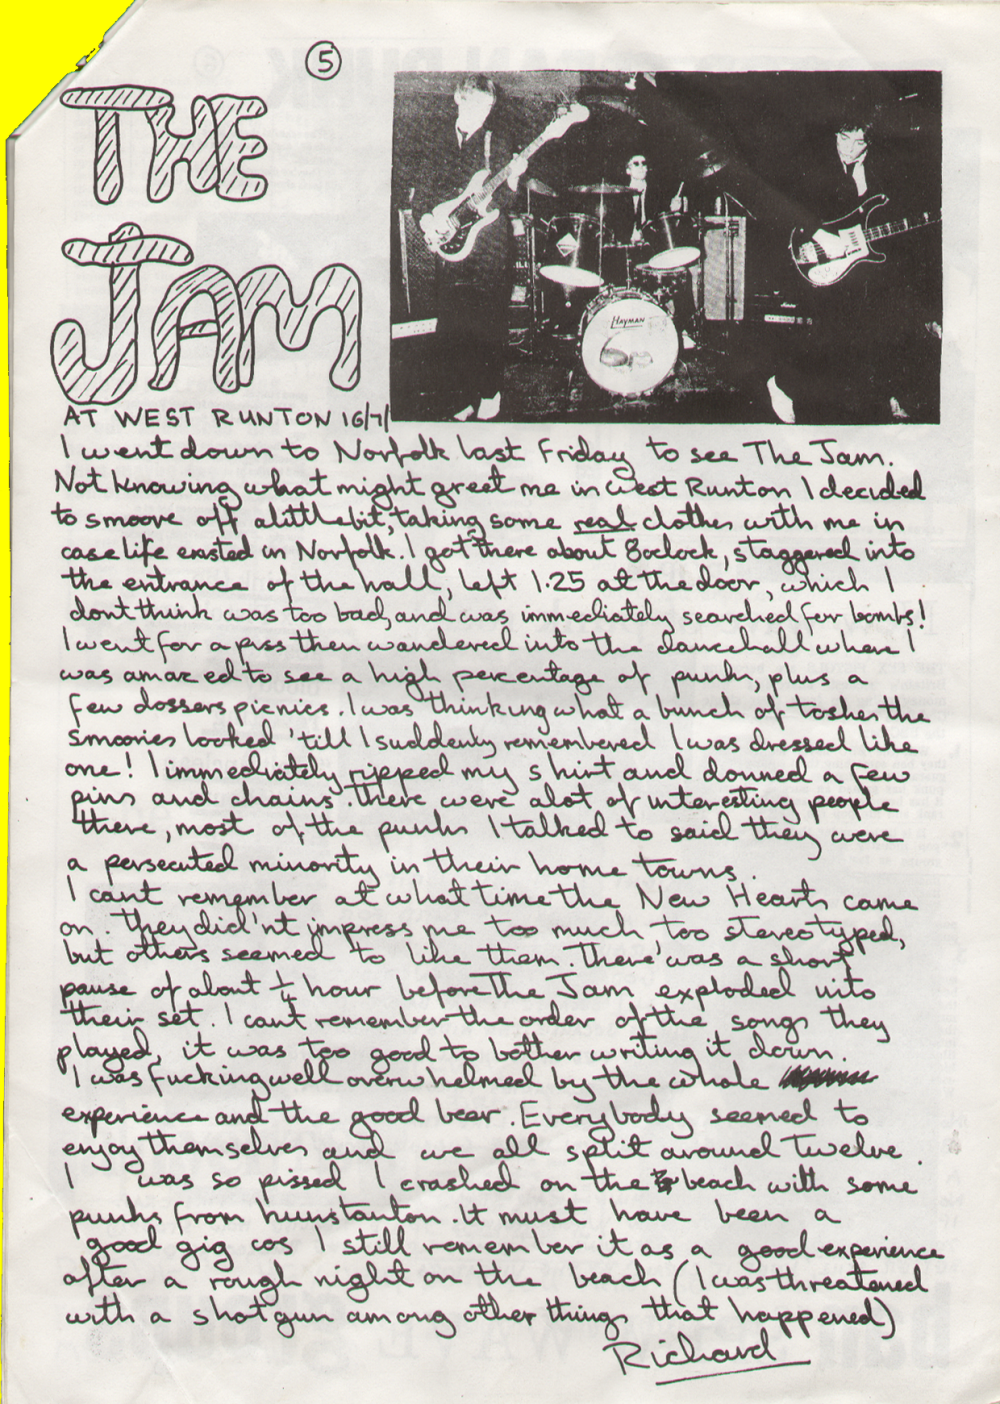 5
THE
JAM
HAYMAN
AT WEST RUNTON 16/7/
I went down to Norfolk last Friday to see The Jam.
Not knowing what might greet me in West Runton I decided
to smoove off alittle bit, taking some real clothes with me in
case life existed in Norfolk. I got there about 8oclock, staggered into
the entrance of the hall, left 1.25 at the door, which I
dont think was too bad, and was immediately searched for bombs!
I went for a piss then wandered into the dancehall where I
was amazed to see a high percentage of punks, plus a
few dossers picnics. I was thinking what a bunch of toshers the
smoovies looked 'till I suddenly remembered I was dressed like
one! I immediately ripped my shirt and donned a few
pins and chains. There were alot of interesting people
there, most of the punks I talked to said they were
a persecuted minority in their home towns.
I cant remember at what time the New Hearts came
on. They did'nt impress me too much, too stereotyped,
but others seemed to like them. There was a short
pause of about ¼ hour before The Jam exploded into
their set. I cant remember the order of the songs they
played, it was too good to bother writing it down.
I was fucking well overwhelmed by the whole
experience and the good beer. Everybody seemed to
enjoy themselves and we all split around twelve.
I was so pissed I crashed on the beach with some
punks from hunstanton. It must have been a
good gig cos I still remember it as a good experience
after a rough night on the beach (I was threatened
with a shotgun among other things that happened)
Richard